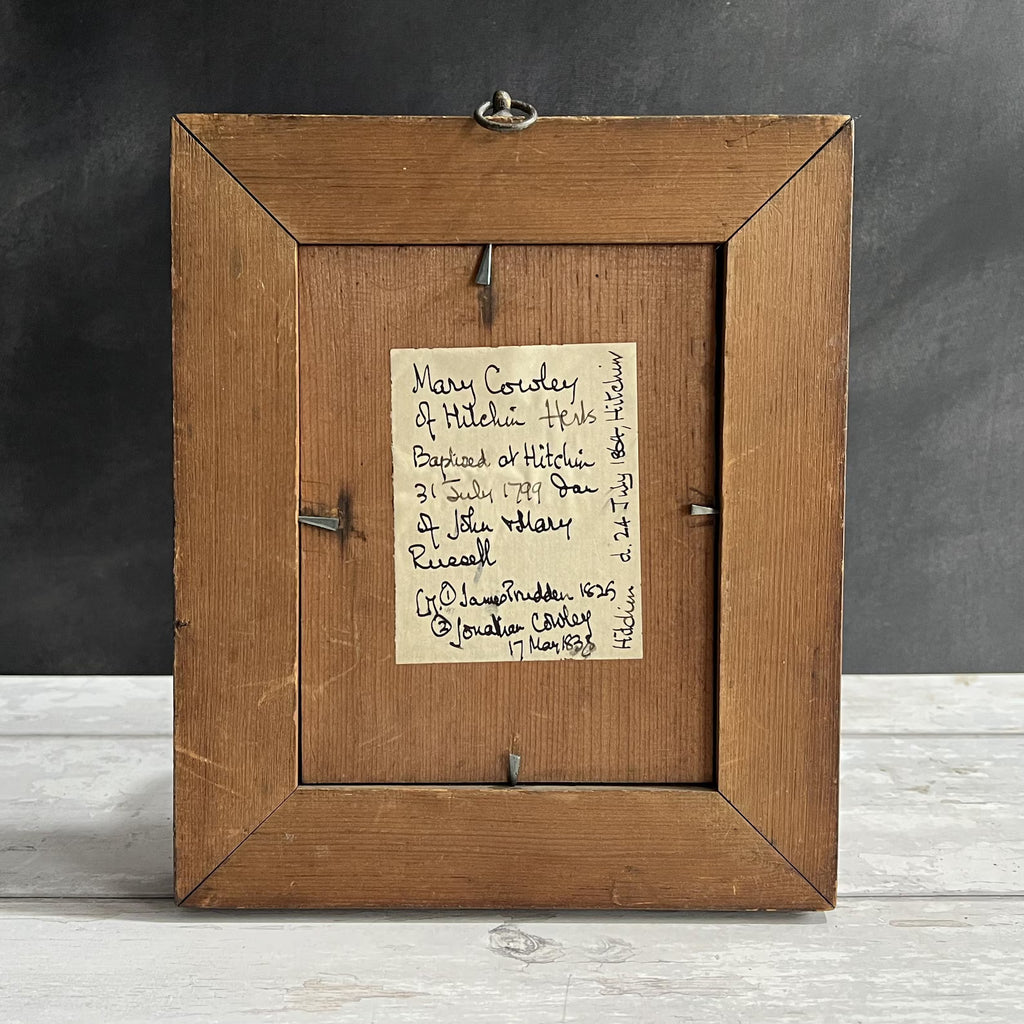 Mary Cowley
of Hitchin Herts
Baptised at Hitchin
31 July 1799 dau
of John & Mary
Russell
① James Prudden 1825
② Jonathan Cowley
17 May 1838
Hitchin d. 24 July 1864, Hitchin